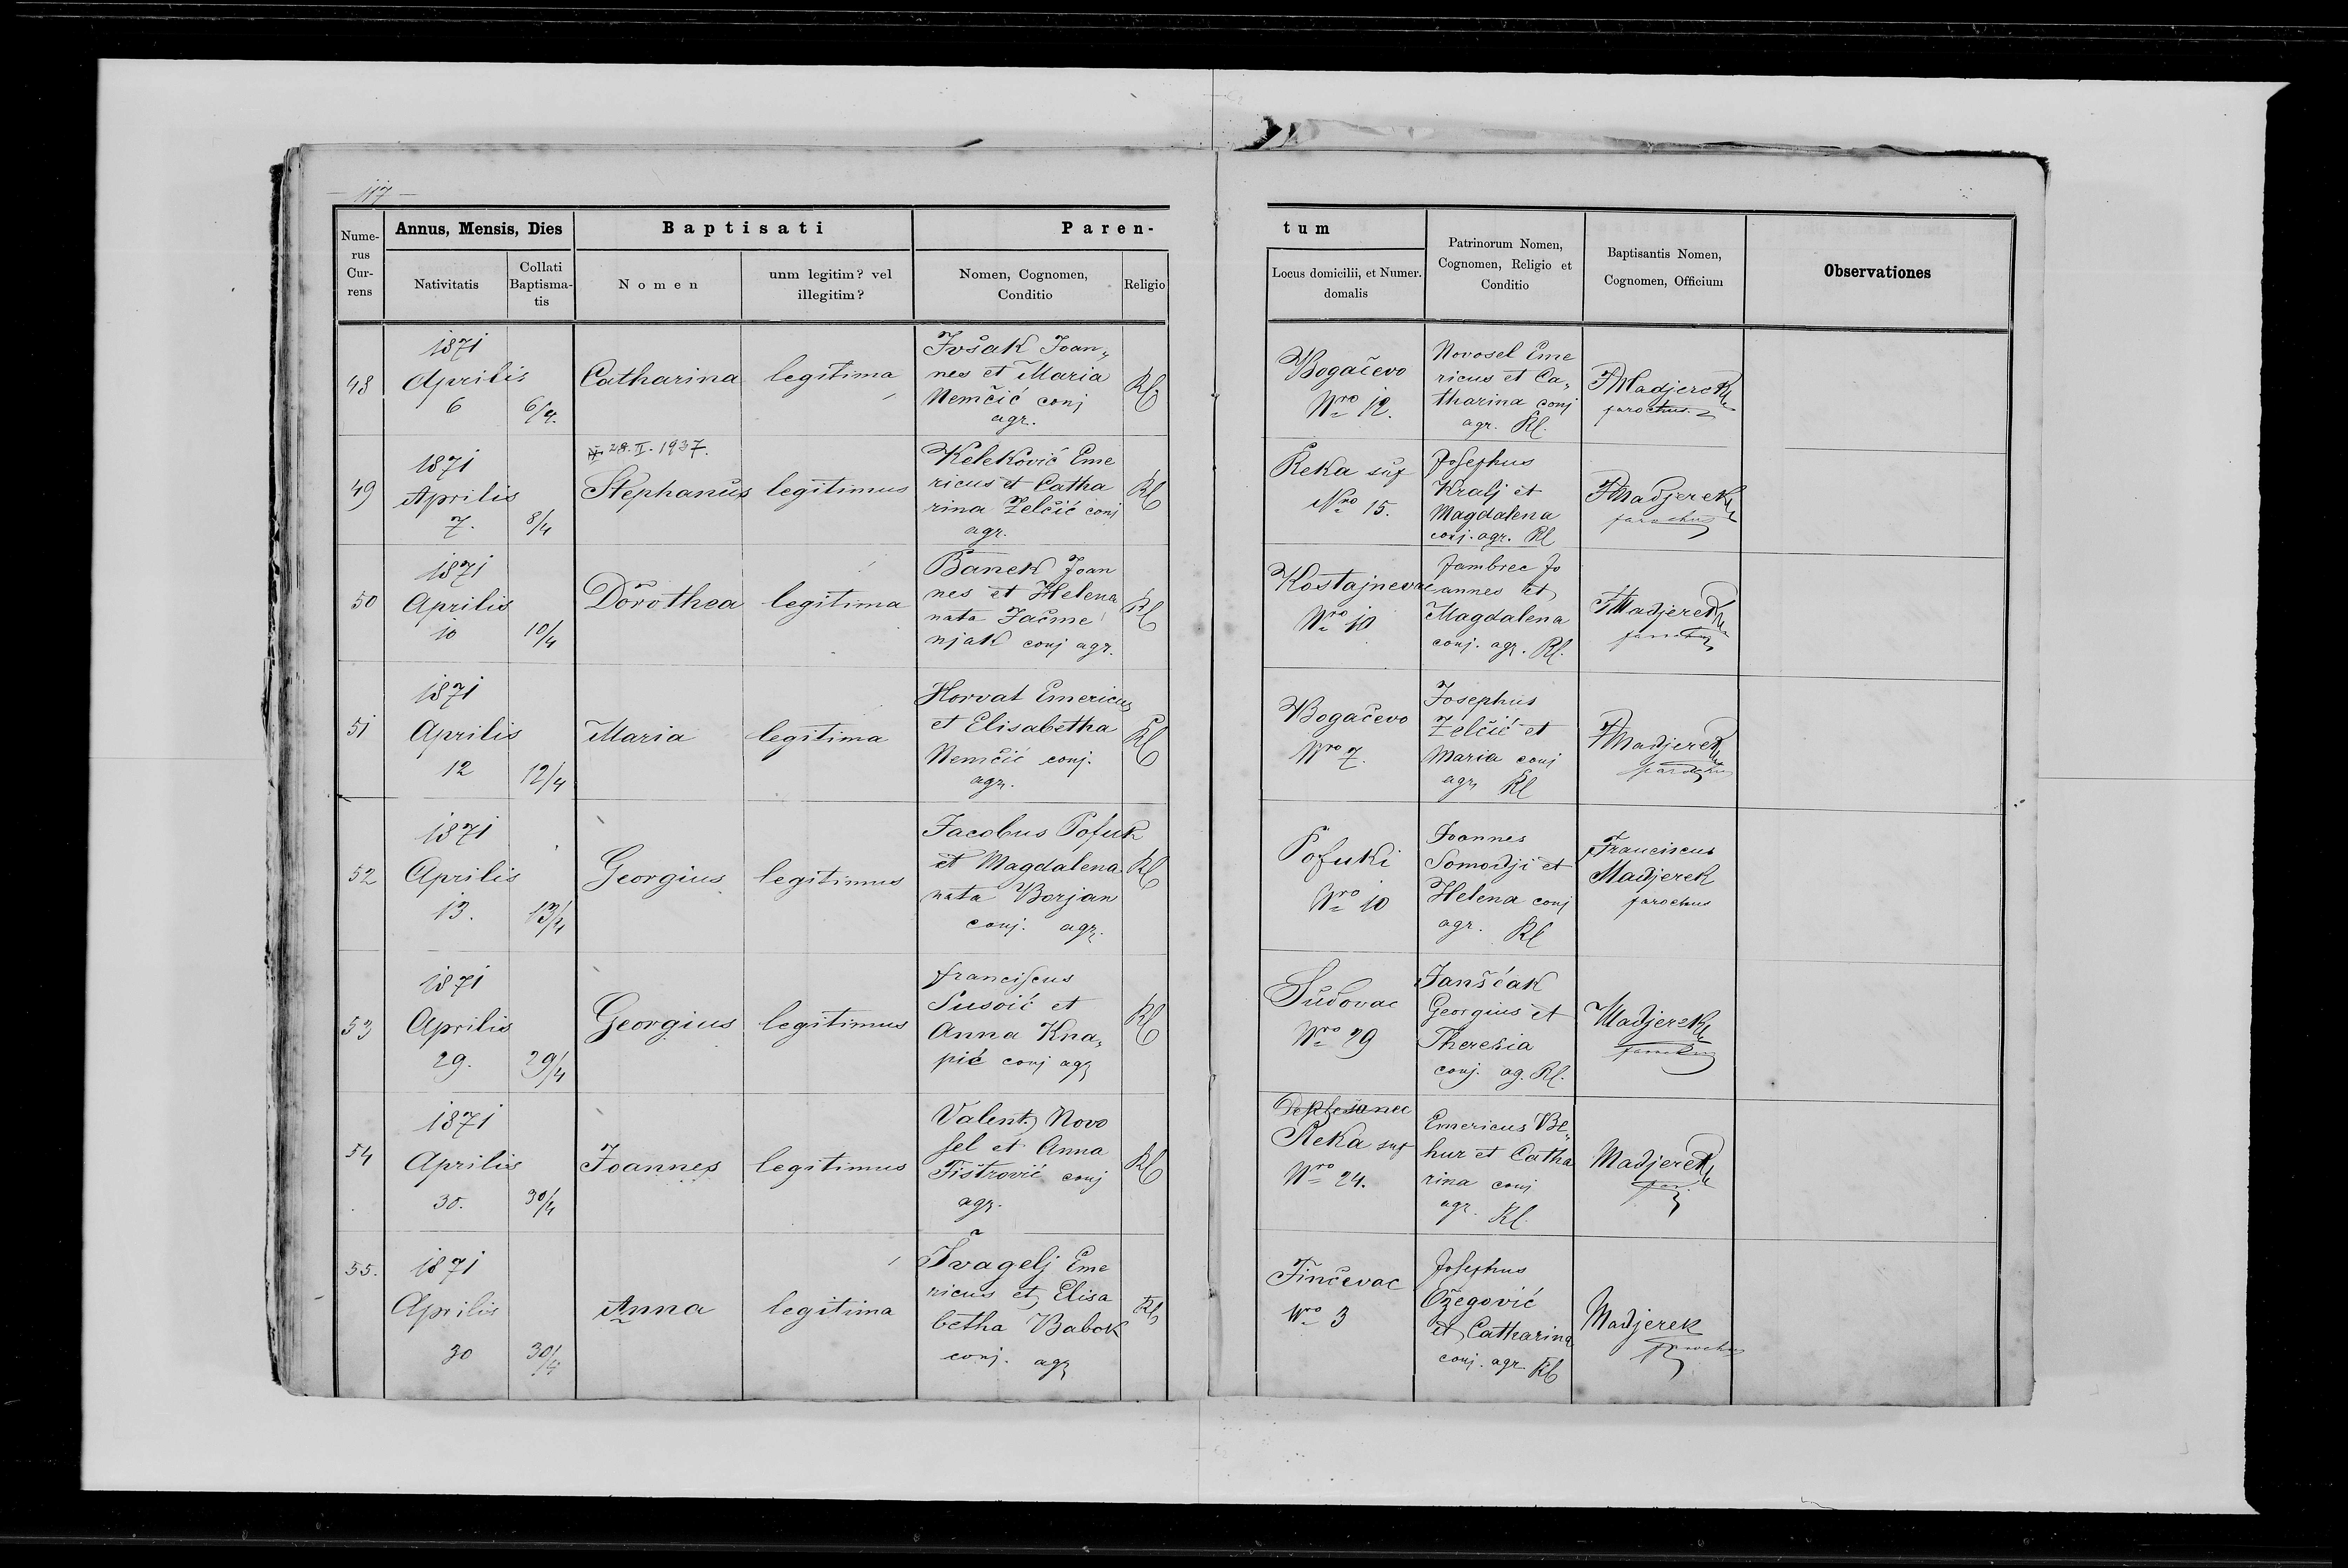 117
Nume-
rus
Cur-
rens
Annus, Mensis, Dies
Nativitatis
Collati
Baptisma-
tis
Baptisati
Nomen
unm legitim? vel
illegitim?
Paren-
Nomen, Cognomen,
Conditio
Religio
tum
Locus domicilii, et Numer.
domalis
Patrinorum Nomen,
Cognomen, Religio et
Conditio
Baptisantis Nomen,
Cognomen, Officium
Observationes
48
1871
Aprilis
6
6/4.
Catharina
legitima
Ivšak Joan„
nes et Maria
Nemčić conj
agr.
Rk
Bogačevo
Nro 12.
Novosel Eme
ricus et Ca„
tharina conj
agr. Rk.
FMadjerek
parochus
49
1871
Aprilis
7.
8/4
28. II. 1937.
Stephanus
legitimus
Keleković Eme
ricus et Catha
rina Zelčić conj
agr.
Rk
Reka sup
Nro 15.
Josephus
Kralj et
Magdalena
conj. agr. Rk
FMadjerek
parochus
50
1871
Aprilis
10
10/4
Dorothea
legitima
Banek Joan
nes et Helena
nata Jačme
njak conj agr.
Rk
Kostajnevac
Nro 10
Jambrec Jo
annes et
Magdalena
conj. agr. Rk.
FMadjerek
parochus
51
1871
Aprilis
12
12/4
Maria
legitima
Horvat Emericus
et Elisabetha
Nemčić conj.
agr.
Rk
Bogačevo
Nro 7.
Josephus
Zelčić et
Maria conj
agr Rk
FMadjerek
parochus
52
1871
Aprilis
13.
13/4
Georgius
legitimus
Jacobus Pofuk
et Magdalena
nata Borjan
conj. agr.
Rk
Pofuki
Nro 10
Joannes
Somodji et
Helena conj
agr. Rk
Franciscus
Madjerek
parochus
53
1871
Aprilis
29.
29/4
Georgius
legitimus
Franciscus
et
Anna Kna„
pić conj agr
Rk
Sudovac
Nro 29
Janščak
Georgius et
Theresia
conj. ag. Rk.
Madjerek
parochus
54
1871
Aprilis
30.
30/4
Joannes
legitimus
Valent. Novo
sel et Anna
Fištrović conj
agr.
Rk
Reka sup
Nro 24.
Emericus Be„
hur et Catha
rina conj
agr. Rk.
Madjerek
par.
55.
1871
Aprilis
30
30/4
Anna
legitima
Švagelj Eme
ricus et Elisa
betha Babok
conj. agr
Rk
Finčevac
Nro 3
Josephus
Ožegović
et Catharina
conj. agr Rk
Madjerek
parochus